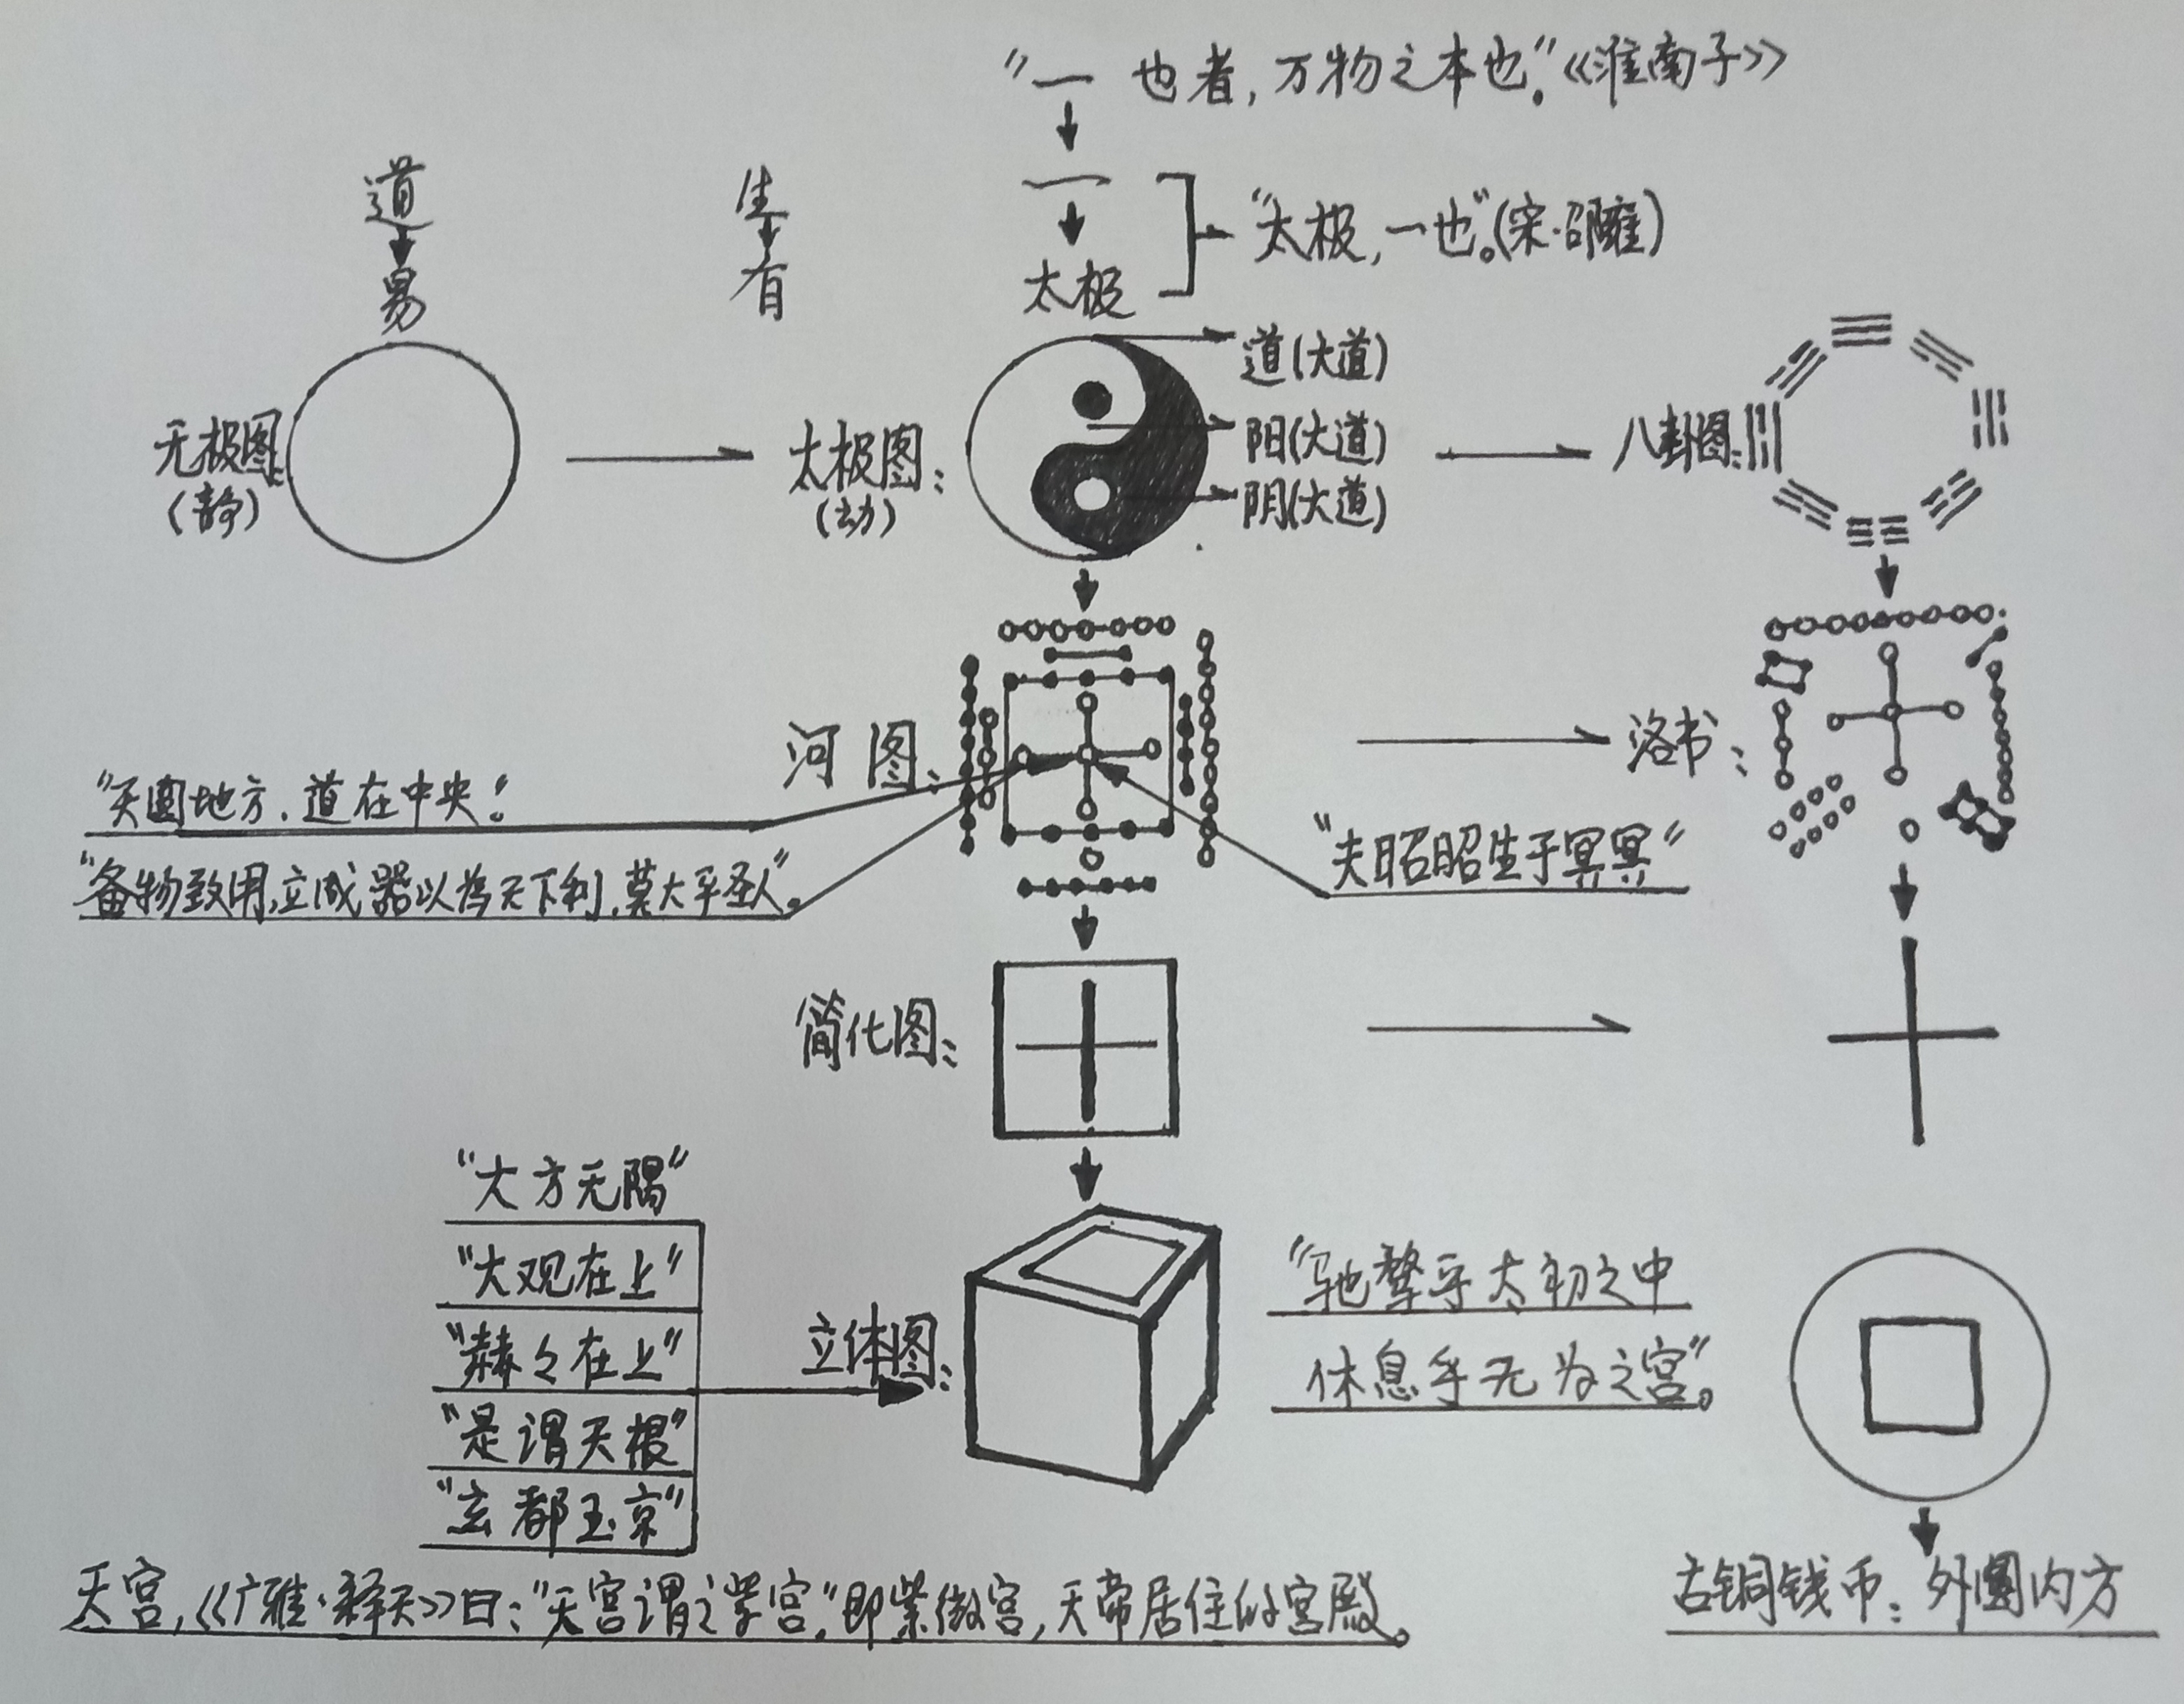 “一 也者，万物之本也。”《淮南子》
道 生 一
“太极，一也”。（宋·邵雍）
易 有 太极
道（大道）
阳（大道）
阴（大道）
无极图：
（静）
太极图：
（动）
八卦图：
河图：
洛书：
“天圆地方，道在中央。”
“备物致用，立成器以为天下利，莫大乎圣人”。
“夫昭昭生于冥冥”
简化图：
“大方无隅”
“大观在上”
“赫々在上”
“是谓天根”
“玄都玉京”
立体图：
“驰骛乎太初之中
休息乎无为之宫”。
天宫，《广雅·释天》曰：“天宫谓之紫宫。”即紫微宫，天帝居住的宫殿。
古铜钱币：外圆内方